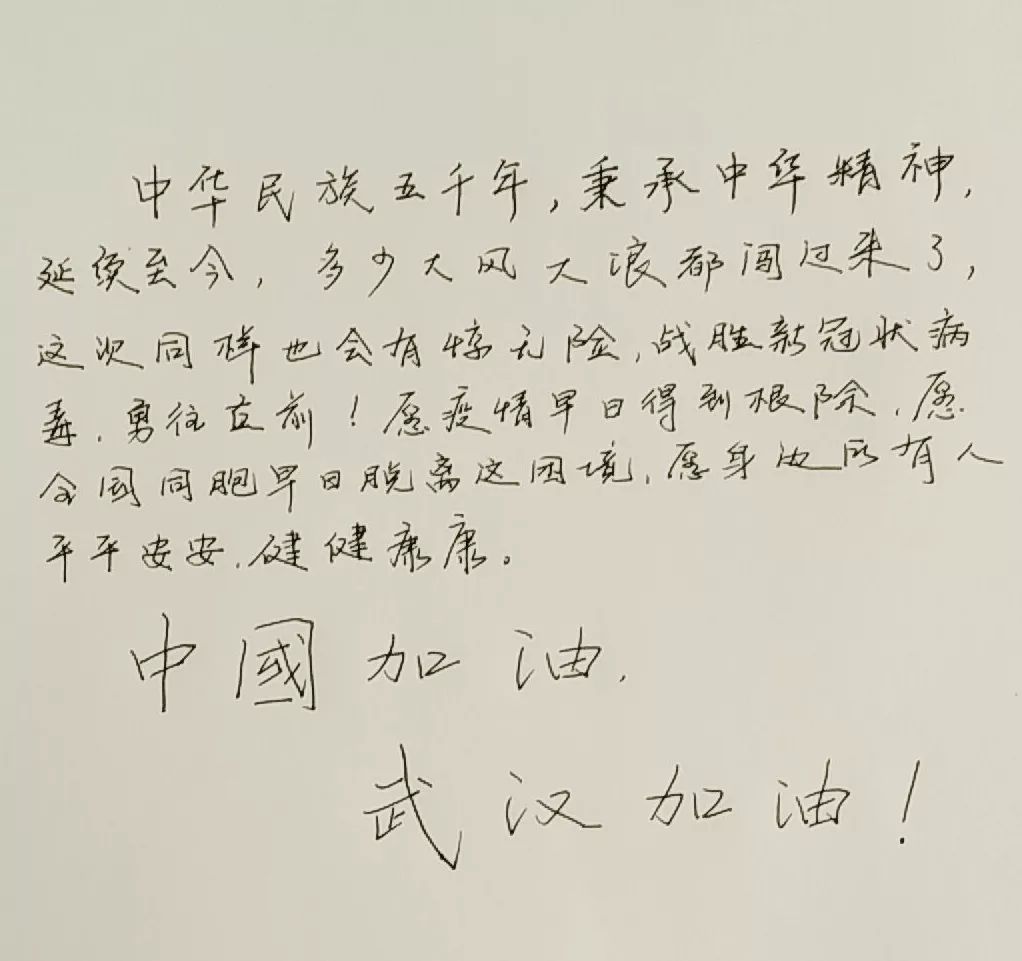 中华民族五千年,秉承中华精神,
延续至今,多少大风大浪都闯过来了,
这次同样也会有惊无险,战胜新冠状病
毒,勇往直前!愿疫情早日得到根除,愿
全国同胞早日脱离这困境,愿身边所有人
平平安安,健健康康。
中國加油,
武汉加油!